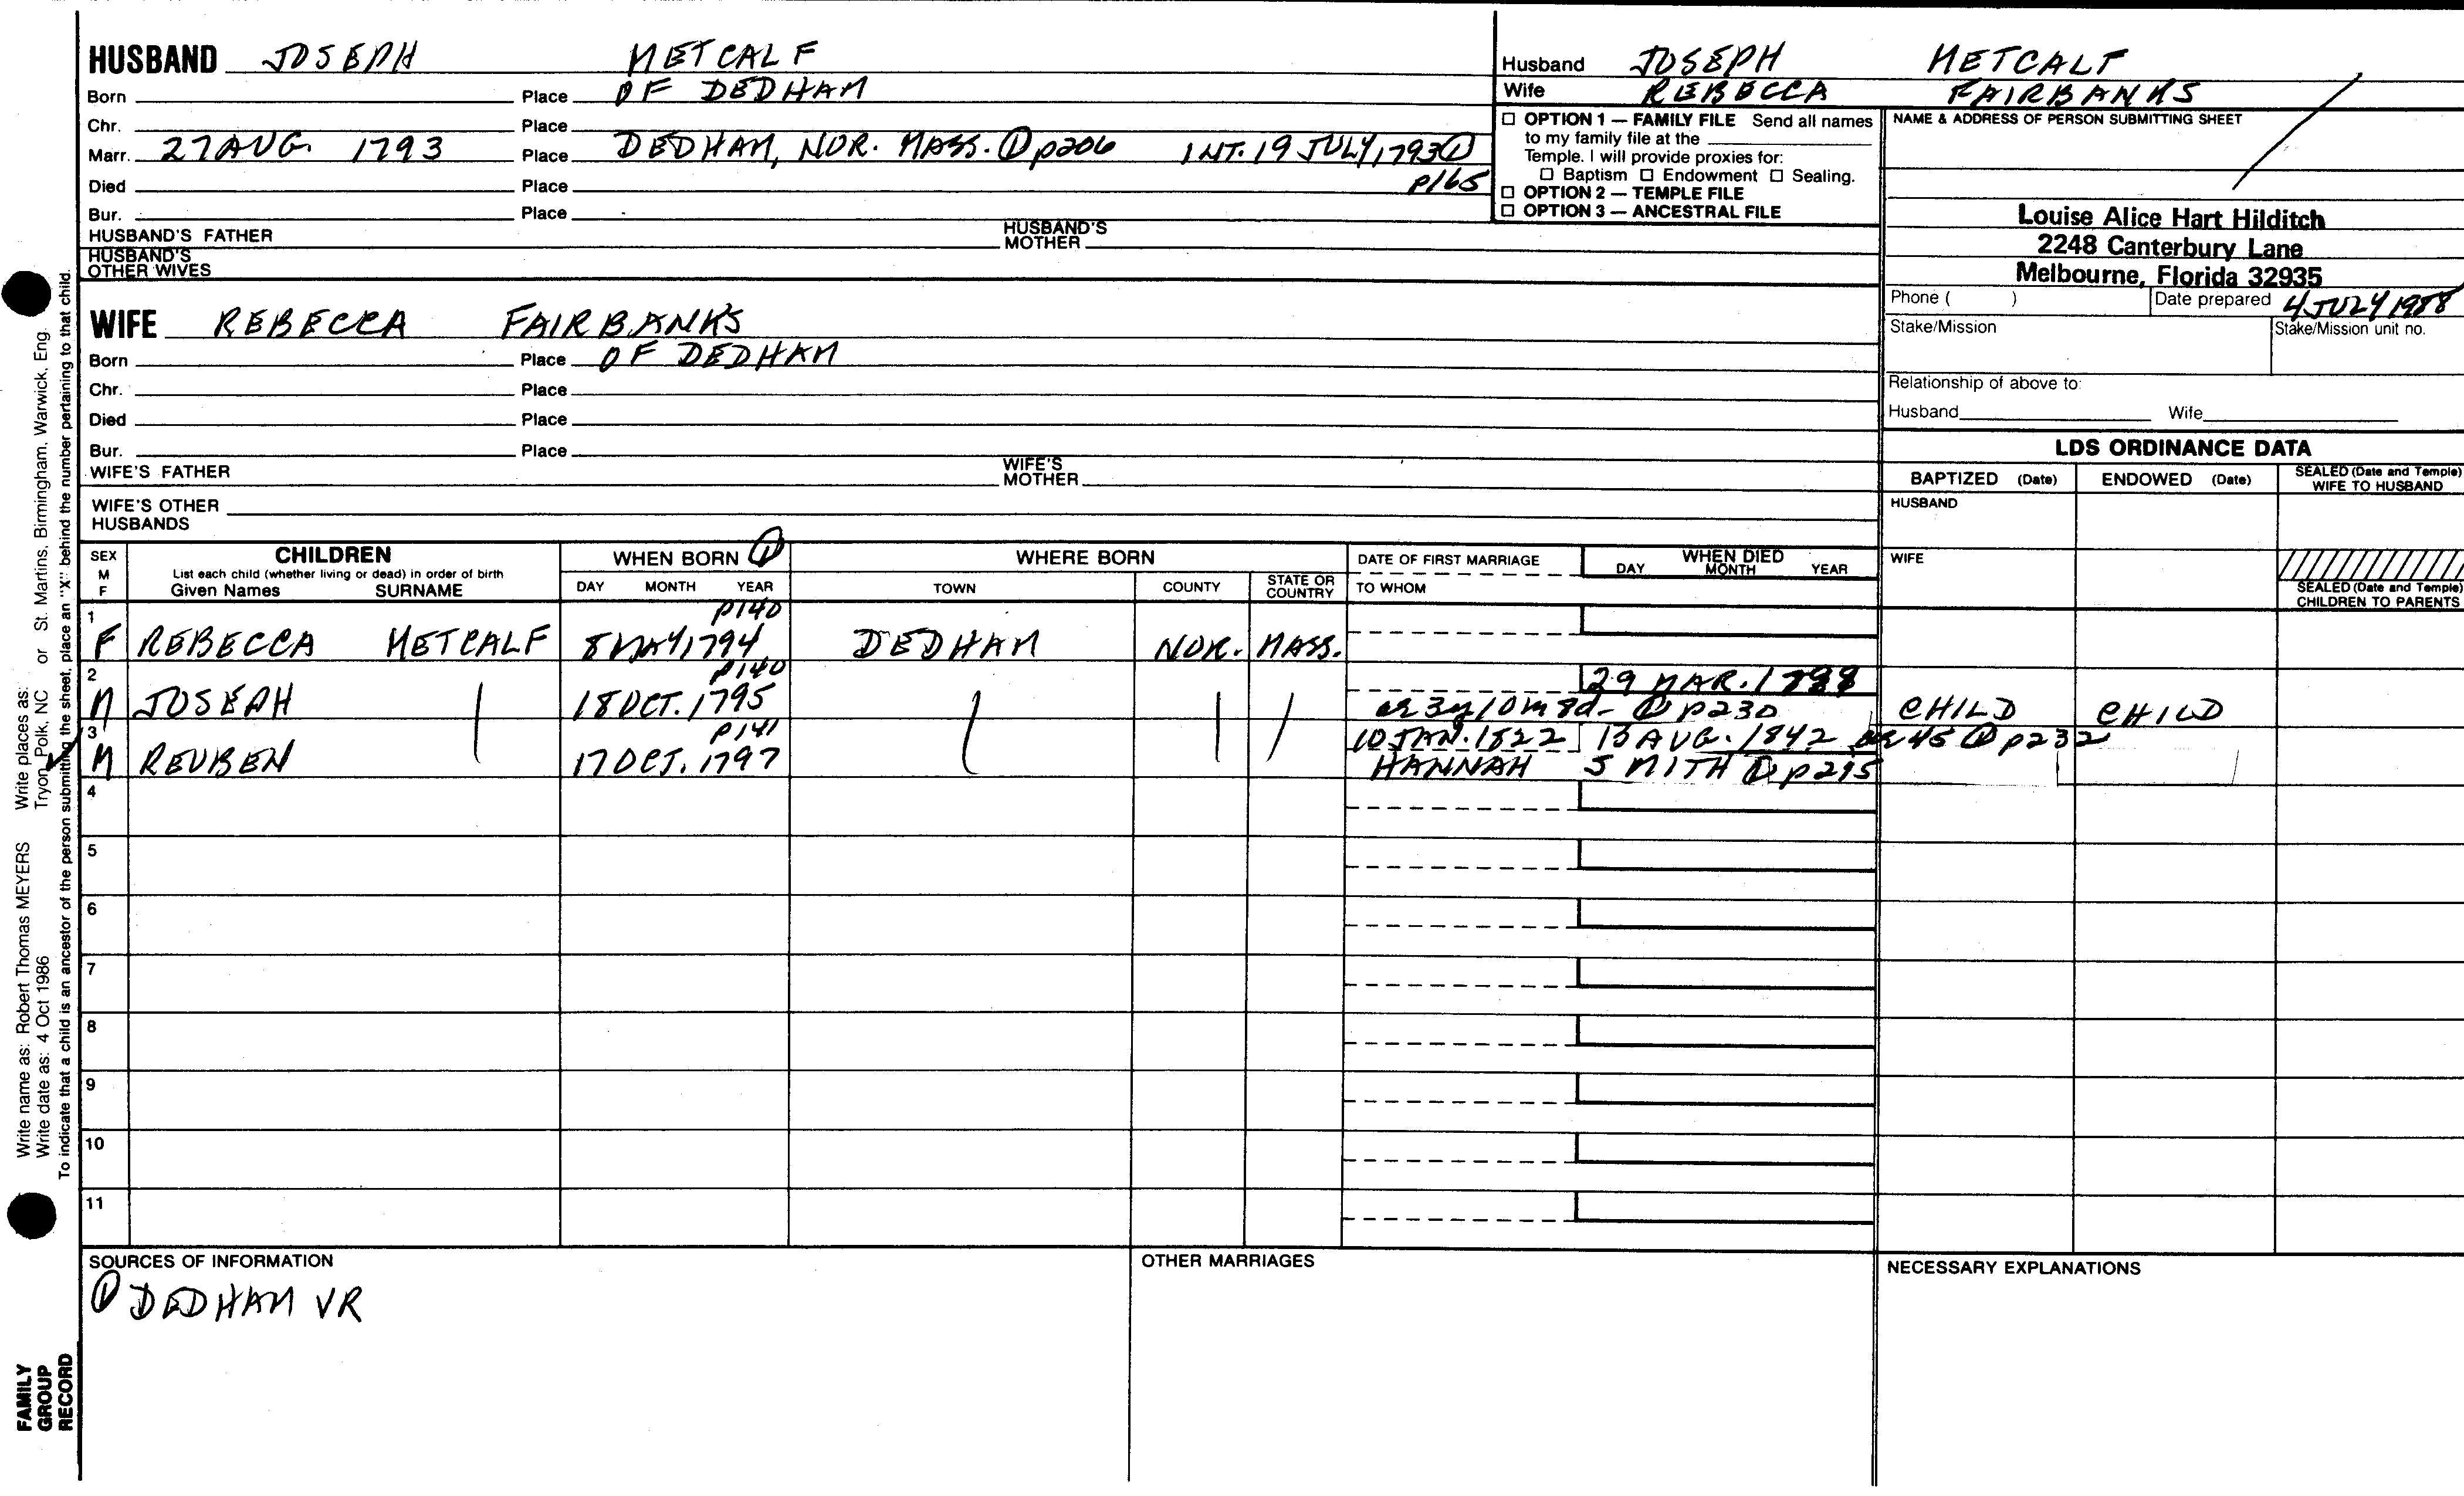 HUSBAND JOSEPH METCALF
Born Place OF DEDHAM
Chr. Place
Marr. 27 AUG. 1793 Place DEDHAM, NOR. MASS. ① p206 INT. 19 JULY 1793 ①
p165
Died Place
Bur. Place
HUSBAND'S FATHER HUSBAND'S MOTHER
HUSBAND'S OTHER WIVES
Husband JOSEPH METCALF
Wife REBECCA FAIRBANKS
☐ OPTION 1 — FAMILY FILE Send all names
to my family file at the
Temple. I will provide proxies for:
☐ Baptism ☐ Endowment ☐ Sealing.
☐ OPTION 2 — TEMPLE FILE
☐ OPTION 3 — ANCESTRAL FILE
NAME & ADDRESS OF PERSON SUBMITTING SHEET
Louise Alice Hart Hilditch
2248 Canterbury Lane
Melbourne, Florida 32935
Phone ( ) Date prepared 4 JULY 1988
Stake/Mission Stake/Mission unit no.
Relationship of above to:
Husband Wife
WIFE REBECCA FAIRBANKS
Born Place OF DEDHAM
Chr. Place
Died Place
Bur. Place
WIFE'S FATHER WIFE'S MOTHER
WIFE'S OTHER HUSBANDS
LDS ORDINANCE DATA
BAPTIZED (Date) ENDOWED (Date) SEALED (Date and Temple) WIFE TO HUSBAND
HUSBAND
WIFE
SEALED (Date and Temple) CHILDREN TO PARENTS
SEX M F
CHILDREN
List each child (whether living or dead) in order of birth
Given Names SURNAME
WHEN BORN ①
DAY MONTH YEAR
WHERE BORN
TOWN COUNTY STATE OR COUNTRY
DATE OF FIRST MARRIAGE
TO WHOM
WHEN DIED
DAY MONTH YEAR
1 p140
F REBECCA METCALF 8 MAY 1794 DEDHAM NOR. MASS.
2 p140 29 MAR.
M JOSEPH 18 OCT. 1795 ae 3y 10m 8d- ① p230 CHILD CHILD
3 p141 10 JAN. 1822 13 AUG. 1842 ae 45 ① p232
M REUBEN 17 OCT. 1797 HANNAH SMITH ① p215
4
5
6
7
8
9
10
11
SOURCES OF INFORMATION
① DEDHAM VR
OTHER MARRIAGES
NECESSARY EXPLANATIONS
Write name as: Robert Thomas MEYERS Write places as: Tryon, Polk, NC or St. Martins, Birmingham, Warwick, Eng.
Write date as: 4 Oct 1986
To indicate that a child is an ancestor of the person submitting the sheet, place an "X" behind the number pertaining to that child.
FAMILY
GROUP
RECORD